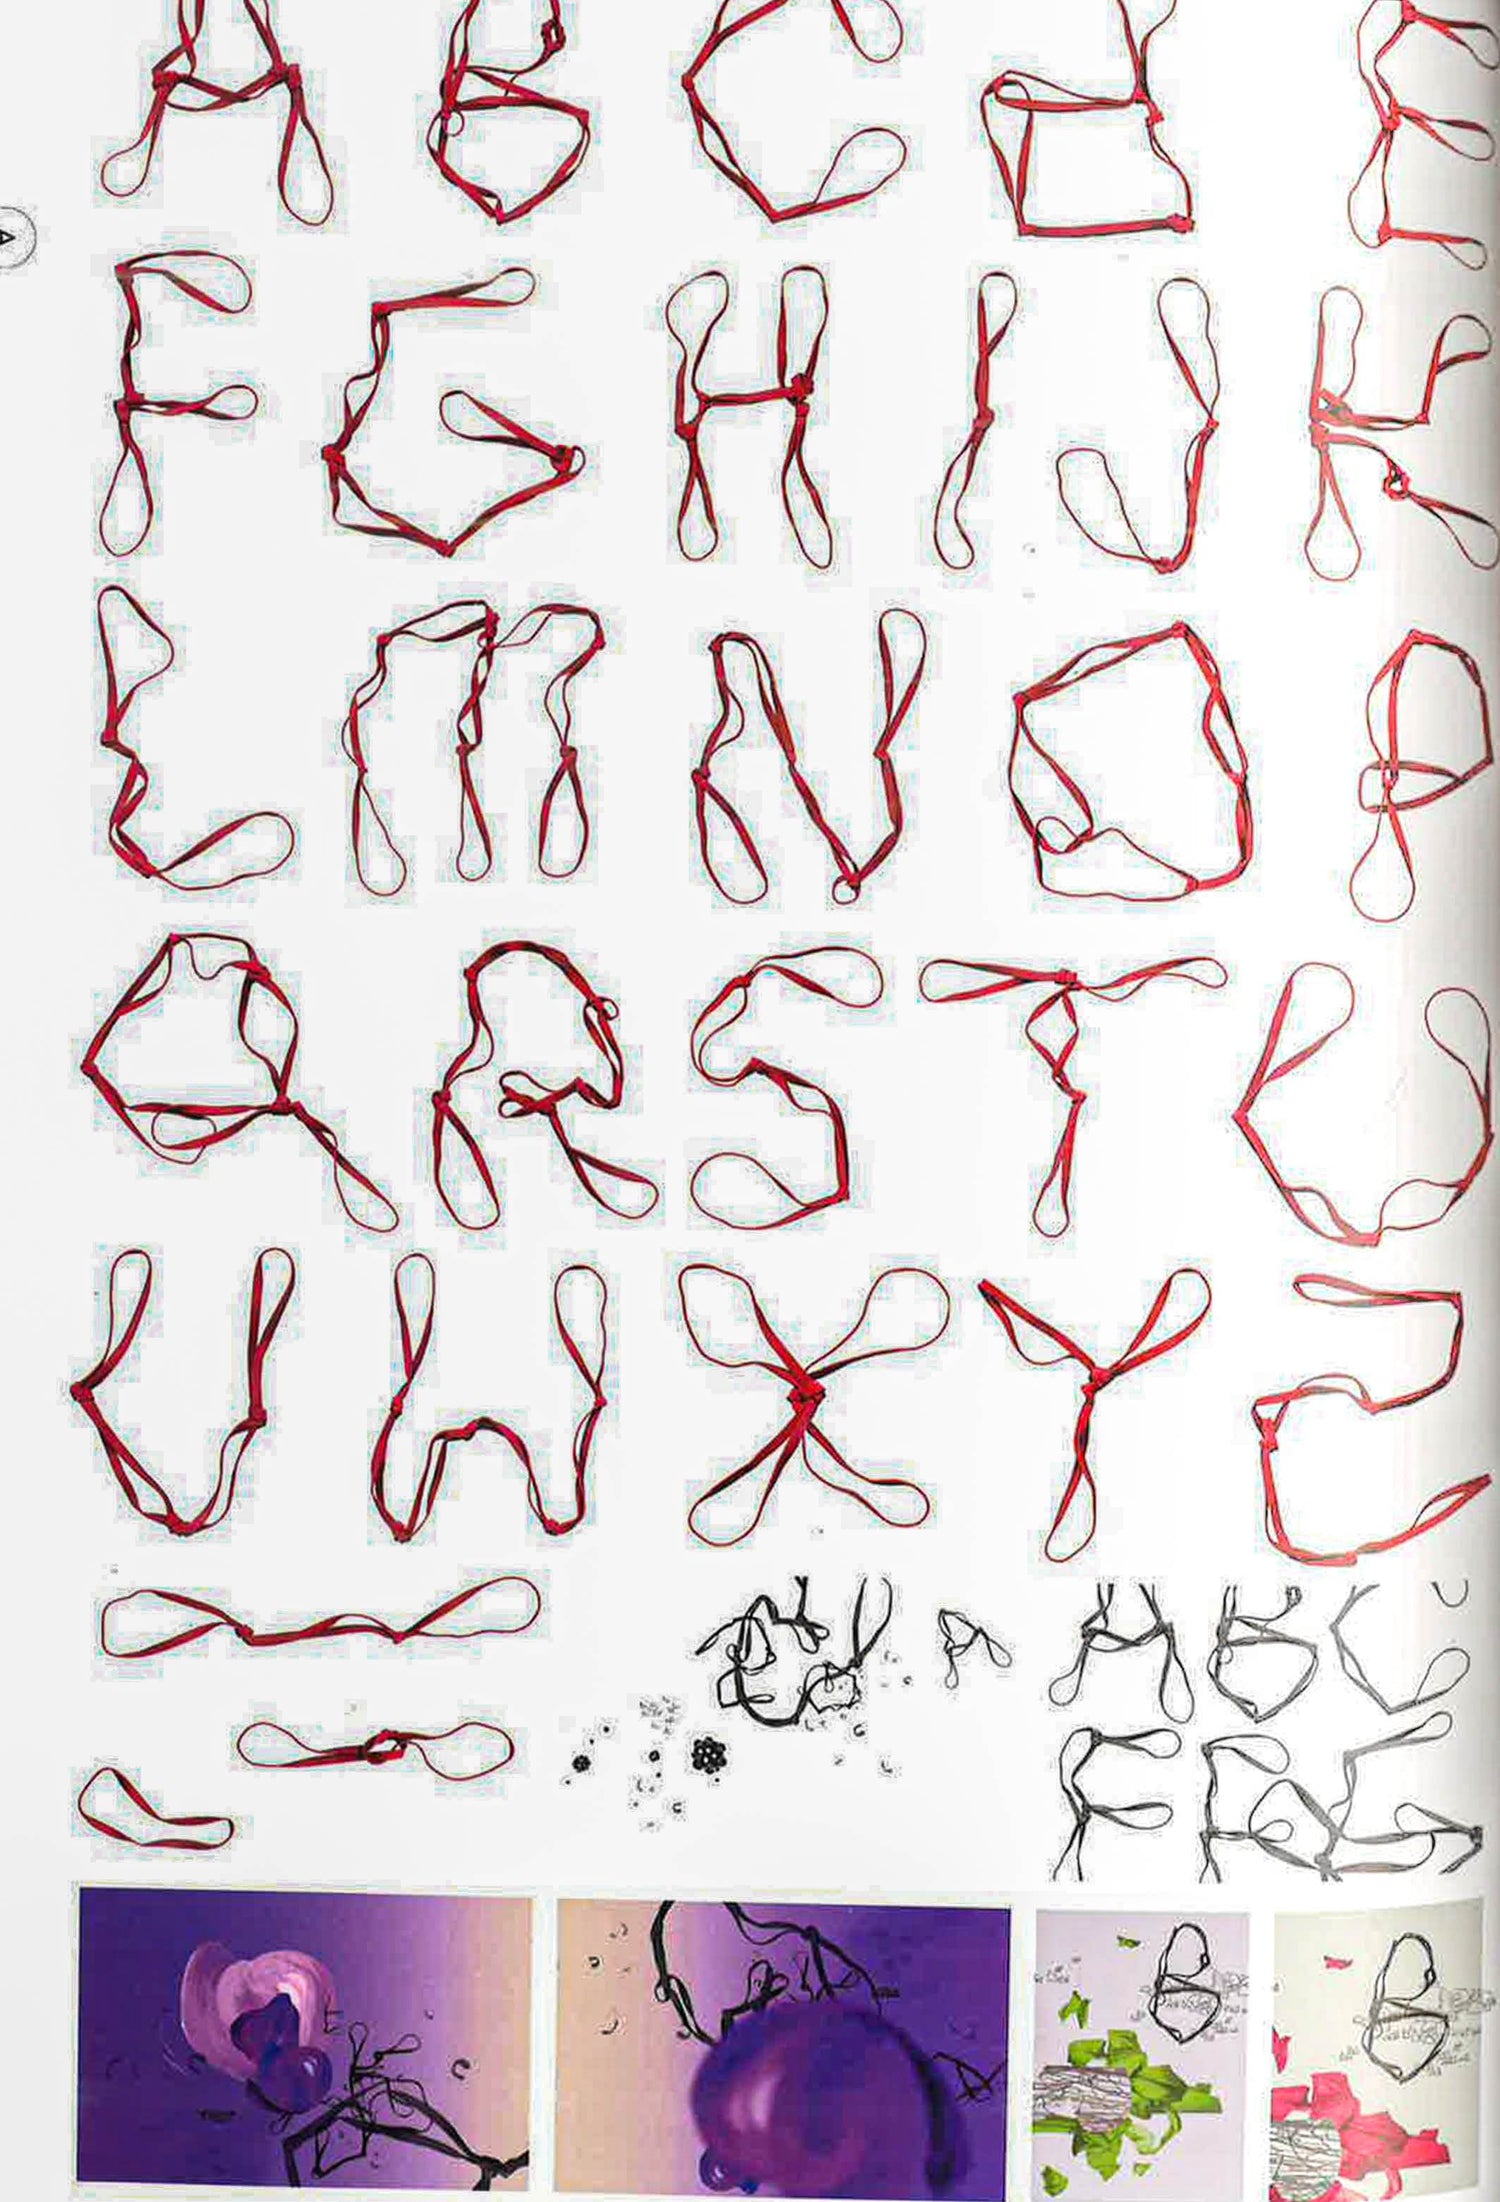 A B C d E
F G H I J K
L m N O P
Q R S T U
V W X Y Z
A B C
F K